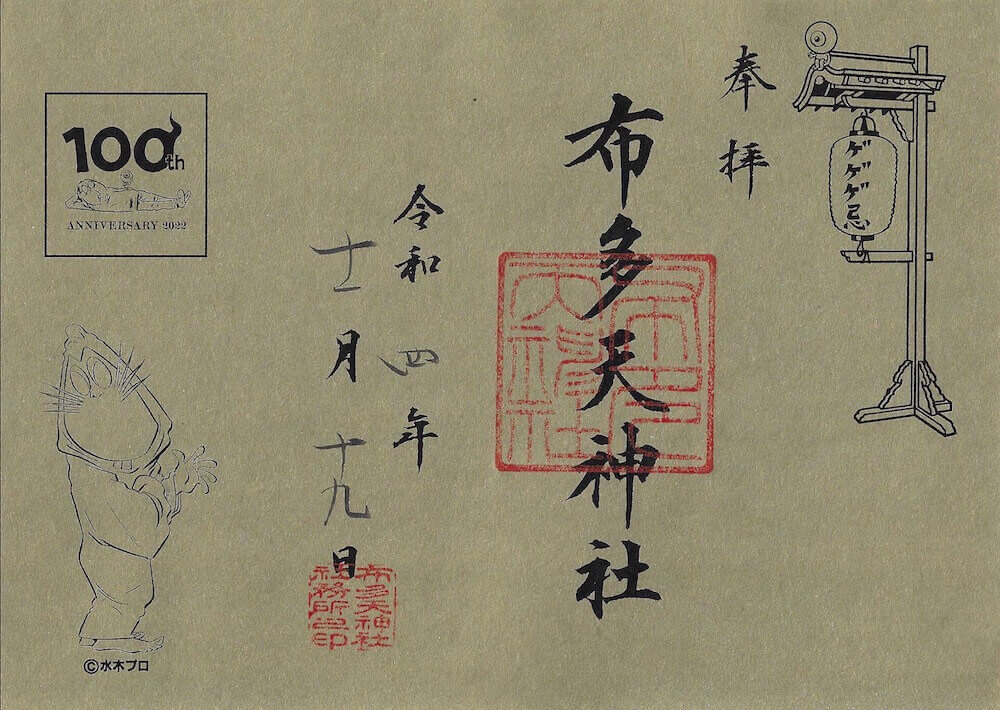 奉拝
布多天神社
令和四年
十一月十九日
布多天神社
社務所之印
ゲゲゲ忌
100th
ANNIVERSARY 2022
©水木プロ